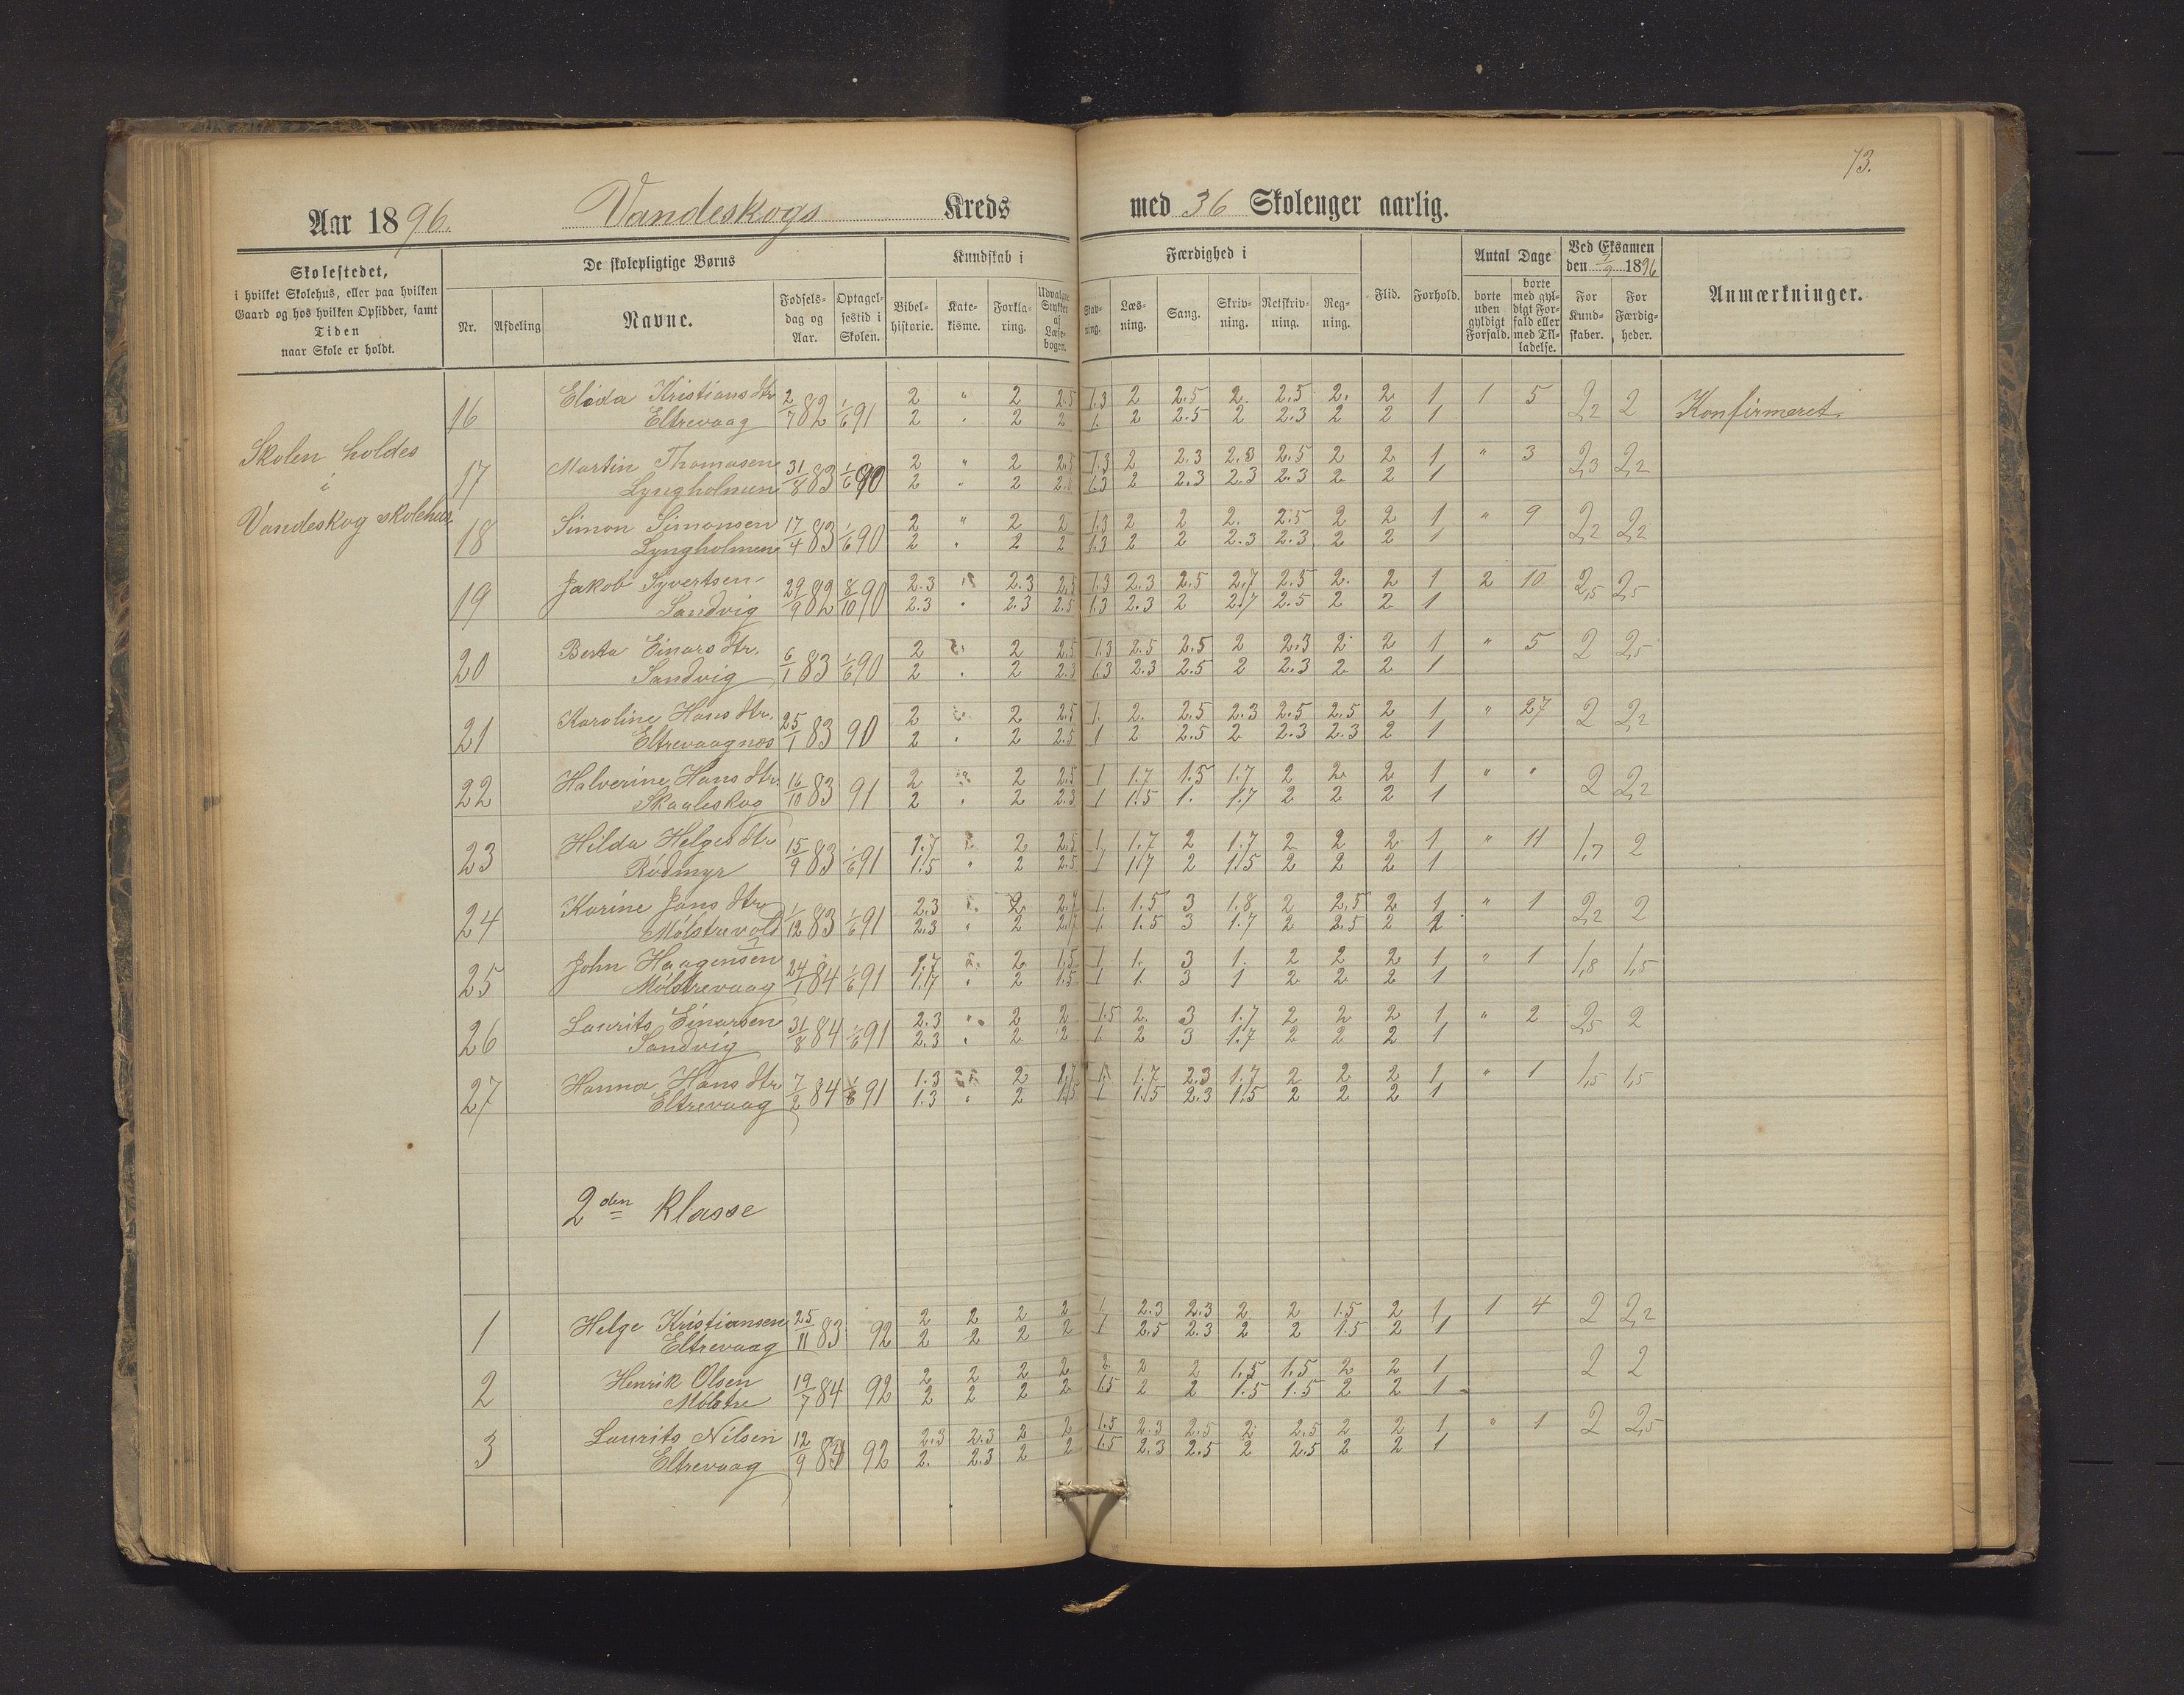 73.
Aar 1896. Vandeskogs Kreds med 36 Skoleuger aarlig.
Skolestedet,
i hvilket Skolehus, eller paa hvilken
Gaard og hos hvilken Opsidder, samt
Tiden
naar Skole er holdt.
De skolepligtige Børns
Nr. Afdeling Navne. Fødselsdag og Aar. Optagelsestid i Skolen.
Kundskab i
Bibelhistorie. Katekisme. Forklaring. Udvalgte Stykker af Læsebogen.
Færdighed i
Stavning. Læsning. Sang. Skrivning. Retskrivning. Regning.
Flid. Forhold.
Antal Dage
borte uden gyldigt Forfald. borte med gyldigt Forfald eller med Tilladelse.
Ved Eksamen
den 1896
For Kundskaber. For Færdigheder.
Anmærkninger.
Skolen holdes
i
Vandeskog skolehus.
16 Elida Kristians dtr 2/7 82 1/6 91 2 " 2 2.5 1.3 2 2.5 2. 2.5 2. 2 1 1 5 2,2 2 Konfirmeret.
Eltrevaag 2 " 2 2 1. 2 2.5 2 2.3 2 2 1
17 Martin Thomasen 31/8 83 1/6 90 2 " 2 2.5 1.3 2 2.3 2.3 2.5 2 2 1 " 3 2,3 2,2
Lyngholmen 2 " 2 2.3 1.3 2 2.3 2.3 2.3 2 2 1
18 Simon Simonsen 17/4 83 1/6 90 2 " 2 2 1.3 2 2 2. 2.5 2 2 1 " 9 2,2 2,2
Lyngholmen 2 " 2 2 1.3 2 2 2.3 2.3 2 2 1
19 Jakob Syvertsen 29/9 82 8/10 90 2.3 " 2.3 2.5 1.3 2.3 2.5 2.7 2.5 2. 2 1 2 10 2,5 2,5
Sandvig 2.3 " 2.3 2.5 1.3 2.3 2 2.7 2.5 2 2 1
20 Berta Einars dtr. 6/1 83 1/6 90 2 " 2 2.5 1.3 2.5 2.5 2 2.3 2 2 1 " 5 2 2,5
Sandvig 2 " 2 2.3 1.3 2.3 2.5 2 2.3 2 2 1
21 Karoline Hans dtr. 25/1 83 90 2 " 2 2.5 1. 2. 2.5 2.3 2.5 2.5 2 1 " 27 2 2,2
Eltrevaagnes 2 " 2 2.5 1 2 2.5 2 2.3 2.3 2 1
22 Halverine Hans dtr. 16/10 83 91 2 " 2 2.5 1 1.7 1.5 1.7 2 2 2 1 " " 2 2,2
Skaaleskog 2 " 2 2.3 1 1.5 1. 1.7 2 2 2 1
23 Hilda Helges dtr 15/9 83 1/6 91 1.7 " 2 2.5 1, 1.7 2 1.7 2 2 2 1 " 11 1,7 2
Rødmyr 1.5 " 2 2.5 1 1.7 2 1.5 2 2 2 1
24 Karine Jans dtr 1/12 83 1/6 91 2.3 " 2 2.7 1. 1.5 3 1.8 2 2.5 2 1 " 1 2,2 2
Mølstrevold 2.3 " 2 2.7 1. 1.5 3 1.7 2 2.5 2 1
25 John Haagensen 24/1 84 1/6 91 1.7 " 2 1.5 1 1. 3 1. 2 2 2 1 " 1 1,8 1,5
Mølstrevaag 1.7 " 2 1.5 1 1. 3 1 2 2 2 1
26 Laurits Einarsen 31/8 84 1/6 91 2.3 " 2 2 1.5 2. 3 1.7 2 2 2 1 " 2 2,5 2
Sandvig 2.3 " 2 2 1. 2 3 1.7 2 2 2 1
27 Hanna Hans dtr 7/2 84 1/6 91 1.3 " 2 1.7 1. 1.7 2.3 1.7 2 2 2 1 " 1 1,5 1,5
Eltrevaag 1.3 " 2 1.5 1 1.5 2.3 1.5 2 2 2 1
2den Klasse
1 Helge Kristiansen 25/11 83 92 2 2 2 2 1. 2.3 2.3 2 2 1.5 2 1 1 4 2 2,2
Eltrevaag 2 2 2 2 1 2.5 2.3 2 2 1.5 2 1
2 Henrik Olsen 19/7 84 92 2 2 2 2 2 2 2 1.5 1.5 2 2 1 2 2
Mølstre 2 2 2 2 1.5 2 2 1.5 1.5 2 2 1
3 Laurits Nilsen 12/9 84 92 2.3 2.3 2 2 1.5 2.3 2.5 2 2.5 2 2 1 " 1 2 2,5
Eltrevaag 2. 2.3 2 2 1.5 2.3 2.5 2 2.5 2 2 1